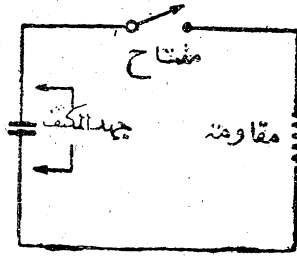 مفتاح
جهد المكثف
مقاومة